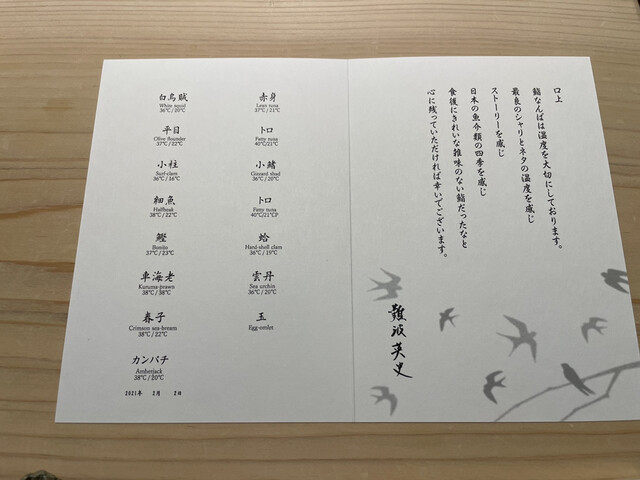 白烏賊
White squid
36℃/20℃
平目
Olive flounder
37℃/22℃
小柱
Surf-clam
36℃/16℃
細魚
Halfbeak
38℃/22℃
鰹
Bonito
37℃/23℃
車海老
Kuruma-prawn
38℃/38℃
春子
Crimson sea-bream
38℃/22℃
カンパチ
Amberjack
38℃/20℃
2021年 2月 2日
赤身
Lean tuna
37℃/21℃
トロ
Fatty tuna
40℃/21℃
小鰭
Gizzard shad
36℃/20℃
トロ
Fatty tuna
40℃/21℃F
蛤
Hard-shell clam
36℃/19℃
雲丹
Sea urchin
36℃/20℃
玉
Egg-omlet
口上
鮨なんばは温度を大切にしております。
最良のシャリとネタの温度を感じ
ストーリーを感じ
日本の魚介類の四季を感じ
食後にきれいな雑味のない鮨だったなと
心に残っていただければ幸いでございます。
難波英史